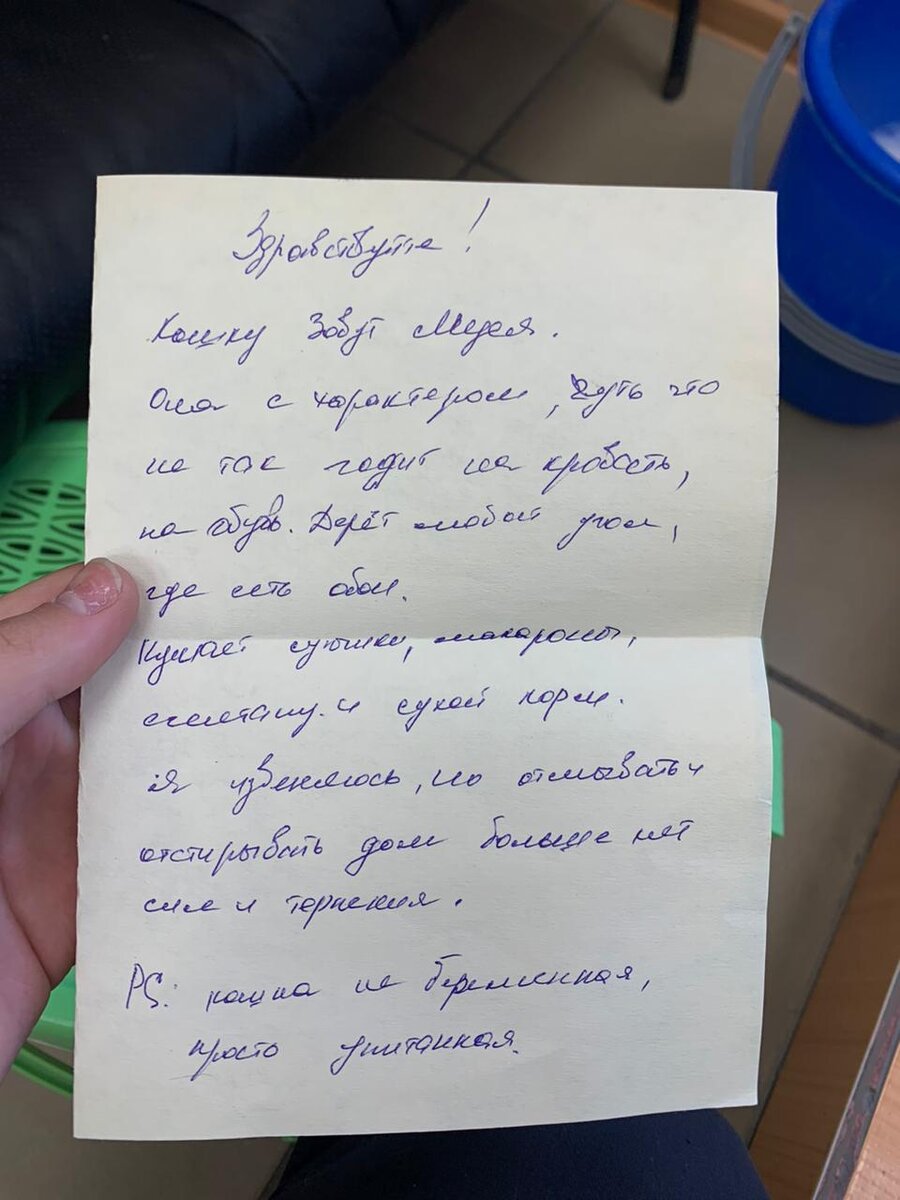 Здравствуйте!
Кошку зовут Медея.
Она с характером, чуть что
не так гадит на кровать,
на обувь. Дерёт любой угол,
где есть обои.
Кушает сушки, макароны,
сметану. и сухой корм.
Я извеняюсь, но отмывать и
отстирывать дом больше нет
сил и терпения.
PS: кошка не беременная,
просто упитанная.